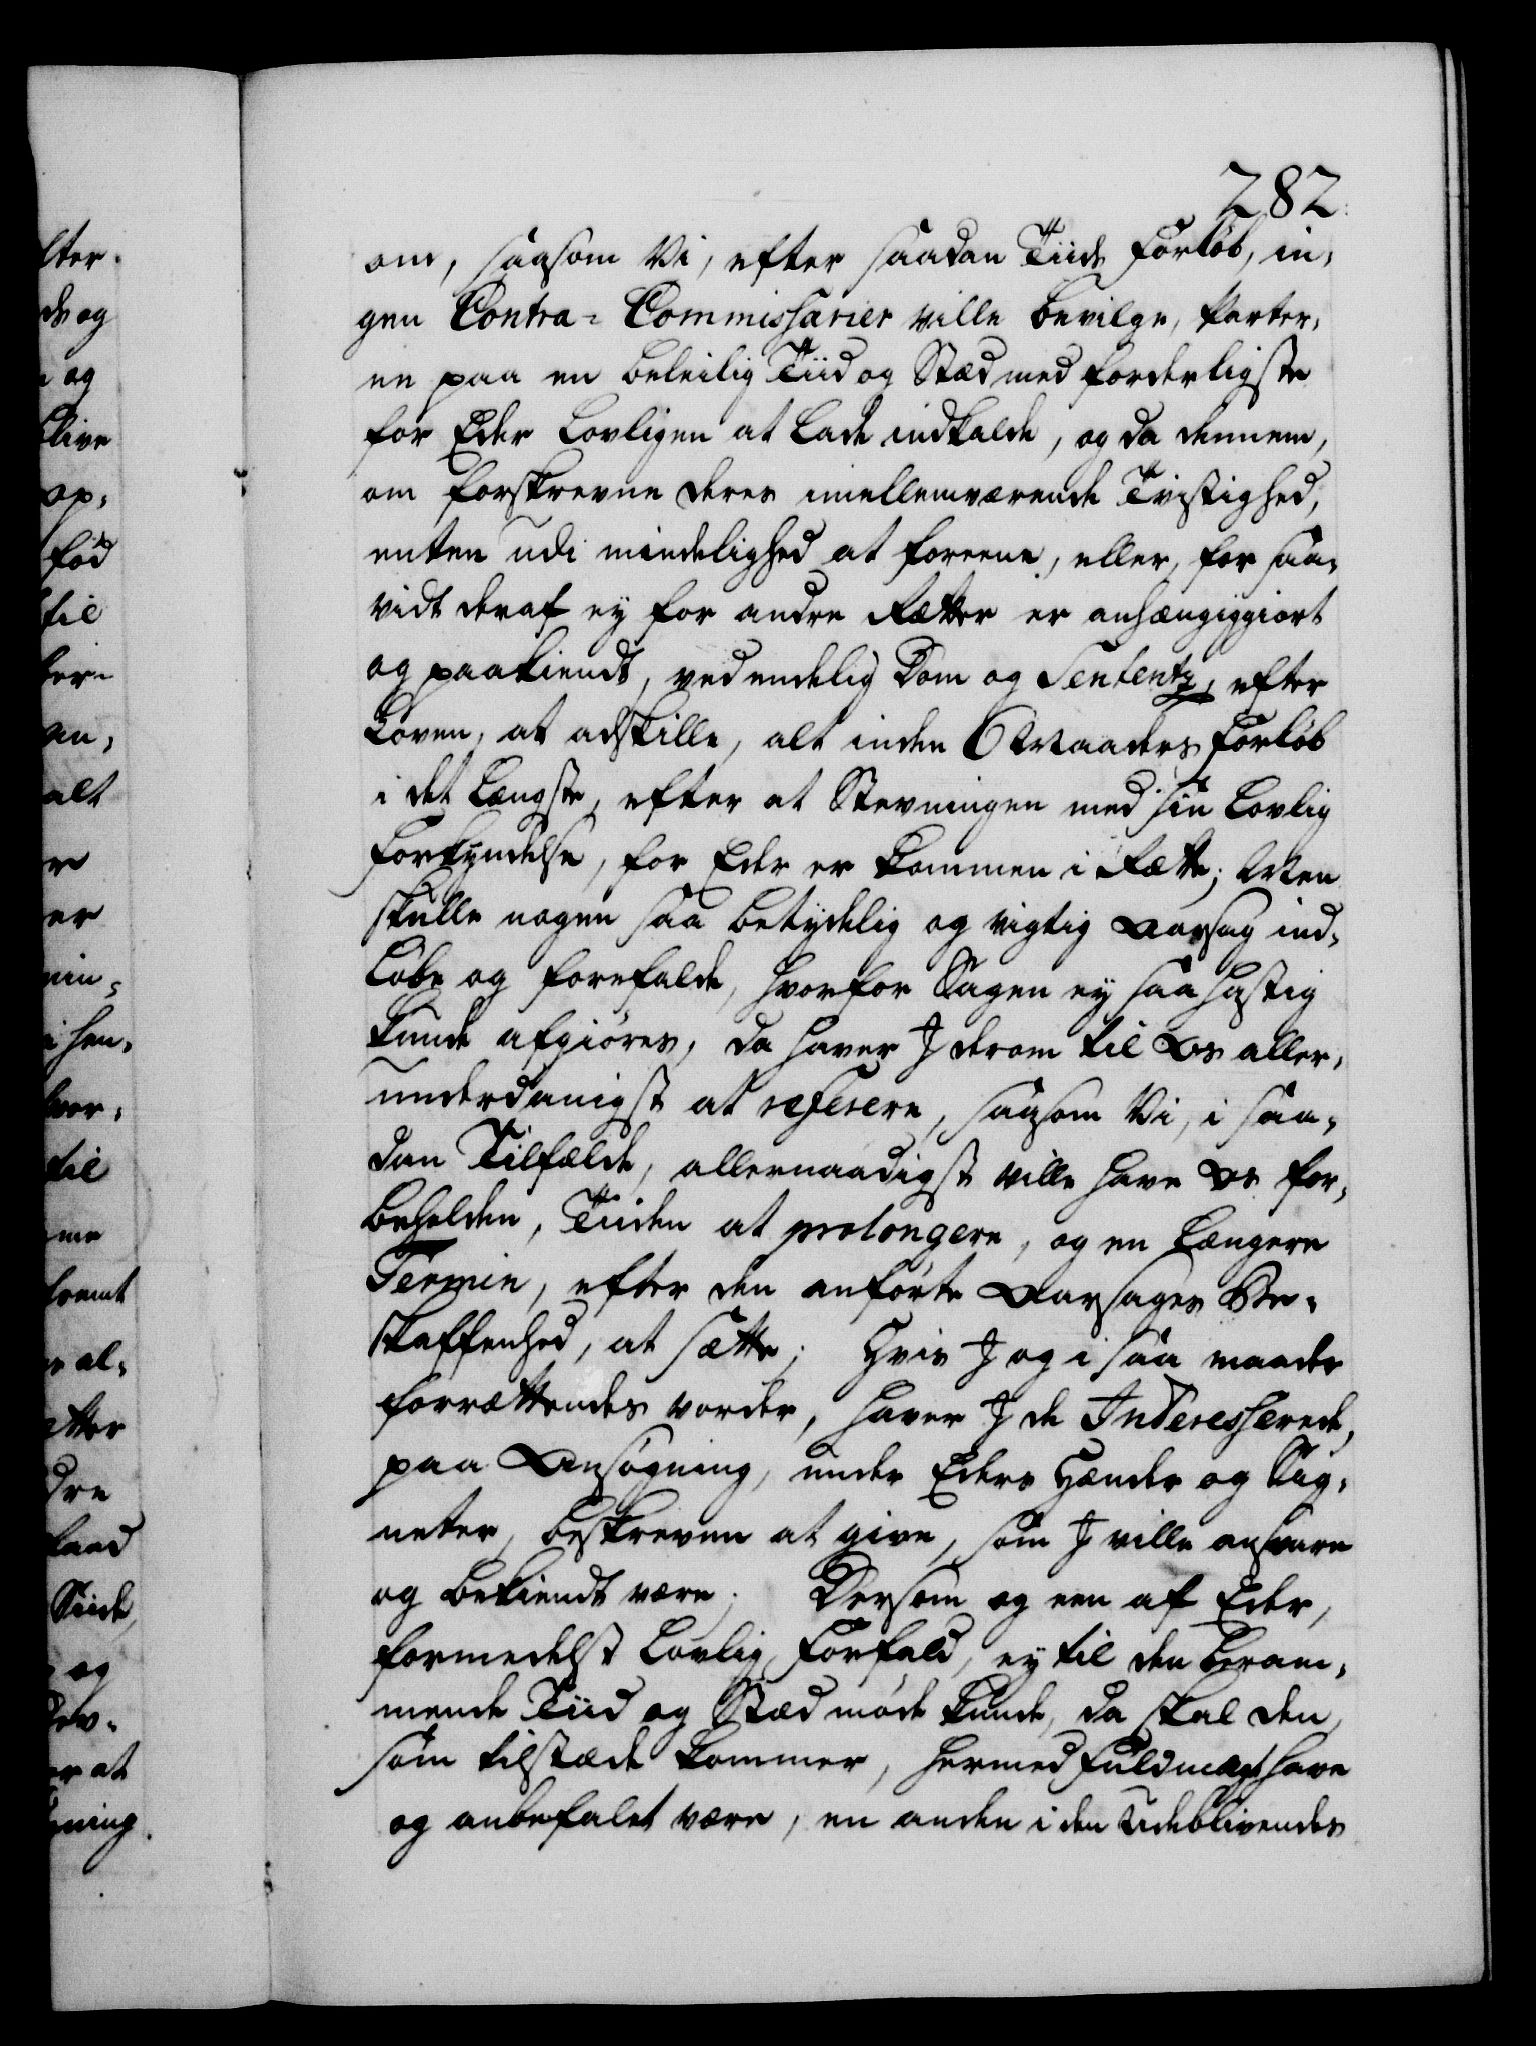 282.
om, saasom Vi, efter saadan Tiids Forløb, in-
gen Contra-Commissarier ville bevilge, Parter-
ne paa en beleilig Tiid og Stæd med forderligste
for Eder Lovligen at lade indkalde, og da dennem,
om forskrevne deres imellemværende Tvistighed,
enten udi mindelighed at foreene, eller, for saa-
vidt deraf ey for andre Retter er anhængiggiort
og paakiendt, ved endelig Dom og Sententz, efter
Loven, at adskille, alt inden 6 Maaders Forløb
i det længste, efter at Stevningen med sin lovlig
Forkyndelse, for Eder er kommen i Rette; Men
skulle nogen saa betydelig og vigtig Aarsag ind-
løbe og forefalde, hvorfor Sagen ey saa hastig
kunde afgiøres, da haver I derom til Os aller-
underdanigst at referere, saasom Vi, i saa-
dan Tilfælde, allernaadigst ville have Os for-
beholden, Tiiden at prolongere, og en længere
Termin, efter den anførte Aarsages Be-
skaffenhed, at sætte; Hvis I og i saa maader
forrettendes vorder, haver I de Interesserede,
paa Ansøgning, under Eders Hænder og Sig-
neter, beskreven at give, som I ville ansvare
og bekiendt være; Dersom og een af Eder,
formedelst Lovlig Forfald, ey til den beram-
mende Tiid og Stæd møde kunde, da skal den,
som tilstæde kommer, hermed Fuldmagt have
og anbefalet være, en anden i den Udeblivendes